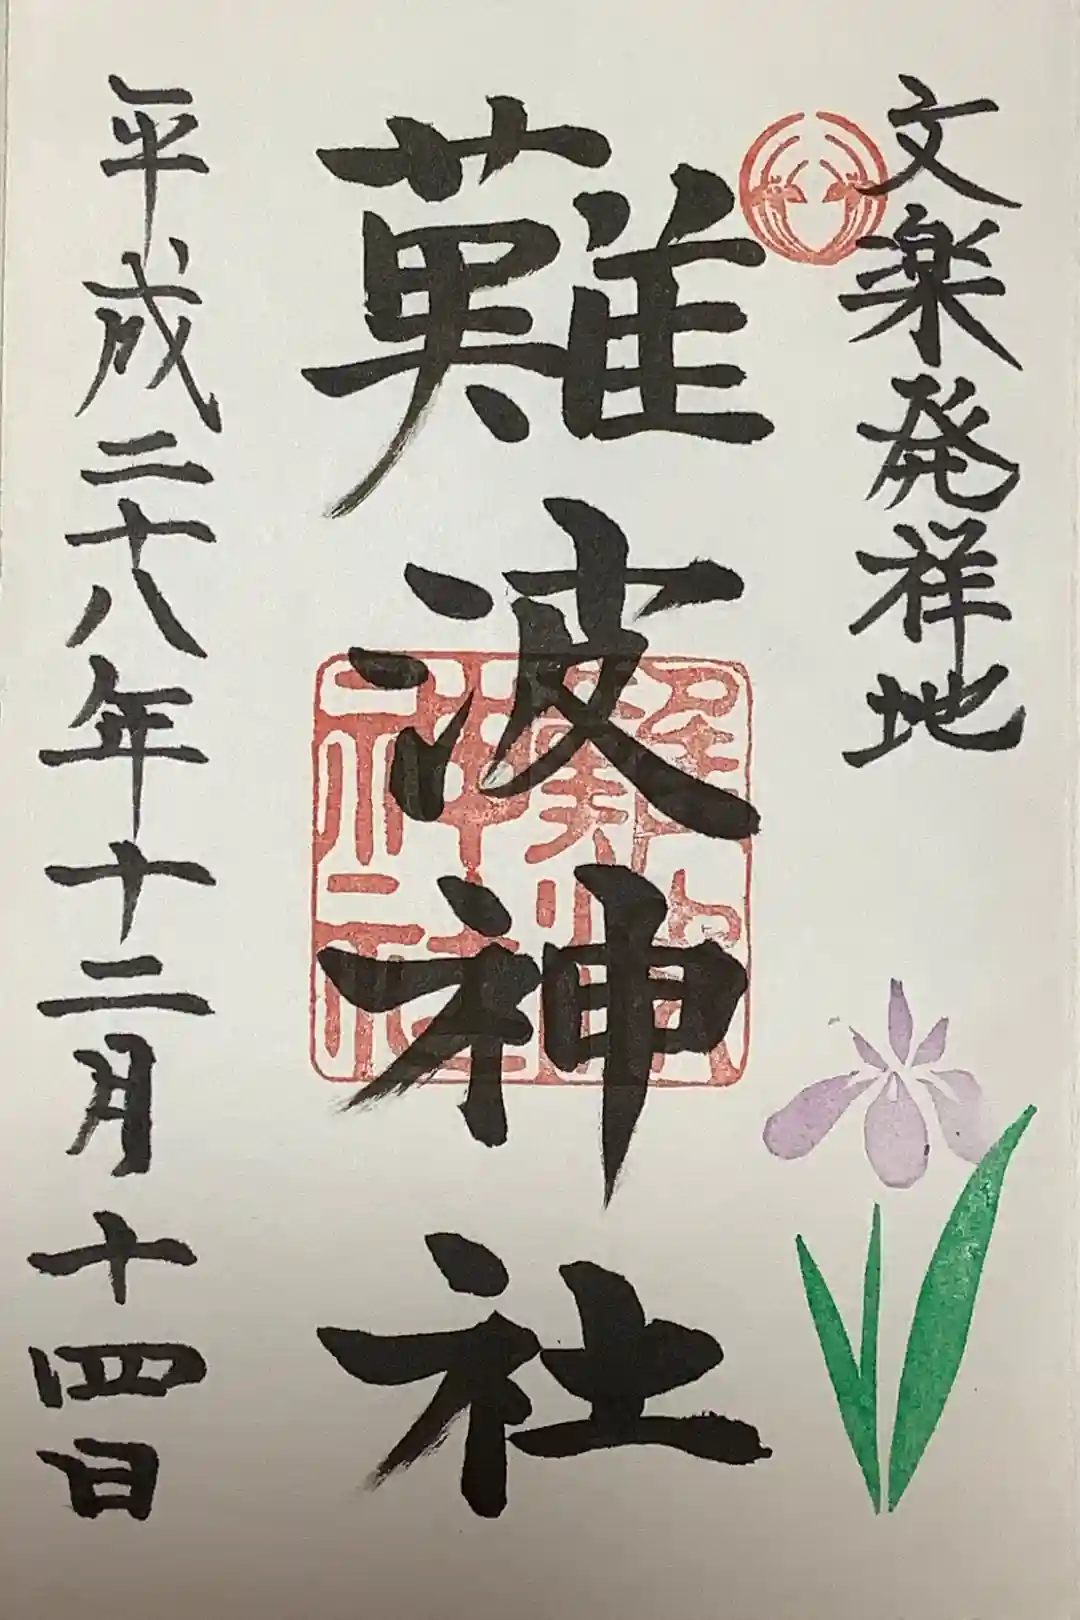 文楽発祥地
難波神社
難波
神社
平成二十八年十二月十四日